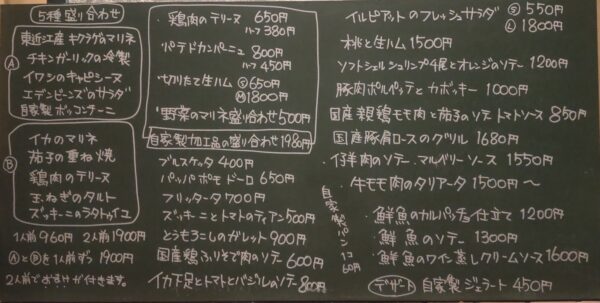 5種盛り合わせ
A
東近江産キクラゲのマリネ
チキンガーリックの冷製
イワシのキャピシーヌ
エデンビーンズのサラダ
自家製ボッコンチーニ
B
イカのマリネ
茄子の重ね焼
鶏肉のテリーヌ
玉ねぎのタルト
ズッキーニのラタトゥイユ
1人前 960円 2人前 1900円
AとBを1人前ずつ 1900円
2人前でおまけが付きます。
鶏肉のテリーヌ 650円
ハーフ 380円
パテドカンパーニュ 800円
ハーフ 450円
切りたて生ハム S 650円
M 1800円
野菜のマリネ盛り合わせ 500円
自家製加工品の盛り合わせ 1980円
ブルスケッタ 400円
パッパポモドーロ 650円
フリッタータ 700円
ズッキーニとトマトのティアン 500円
とうもろこしのガレット 900円
国産鶏ふりそで肉のソテー 600円
イカ下足とトマトとバジルのソテー 800円
自家製パン 1コ 60円
イルピアットのフレッシュサラダ S 550円
L 1800円
桃と生ハム 1500円
ソフトシェルシュリンプ4尾とオレンジのソテー 1200円
豚肉ポルペッテとカボッキー 1000円
国産親鶏モモ肉と茄子のソテートマトソース 850円
国産豚肩ロースのグリル 1680円
仔羊肉のソテー.マルベリーソース 1550円
牛モモ肉のタリアータ 1500円〜
鮮魚のカルパッチョ仕立て 1200円
鮮魚のソテー 1300円
鮮魚のワイン蒸しクリームソース 1600円
デザート 自家製ジェラート 450円